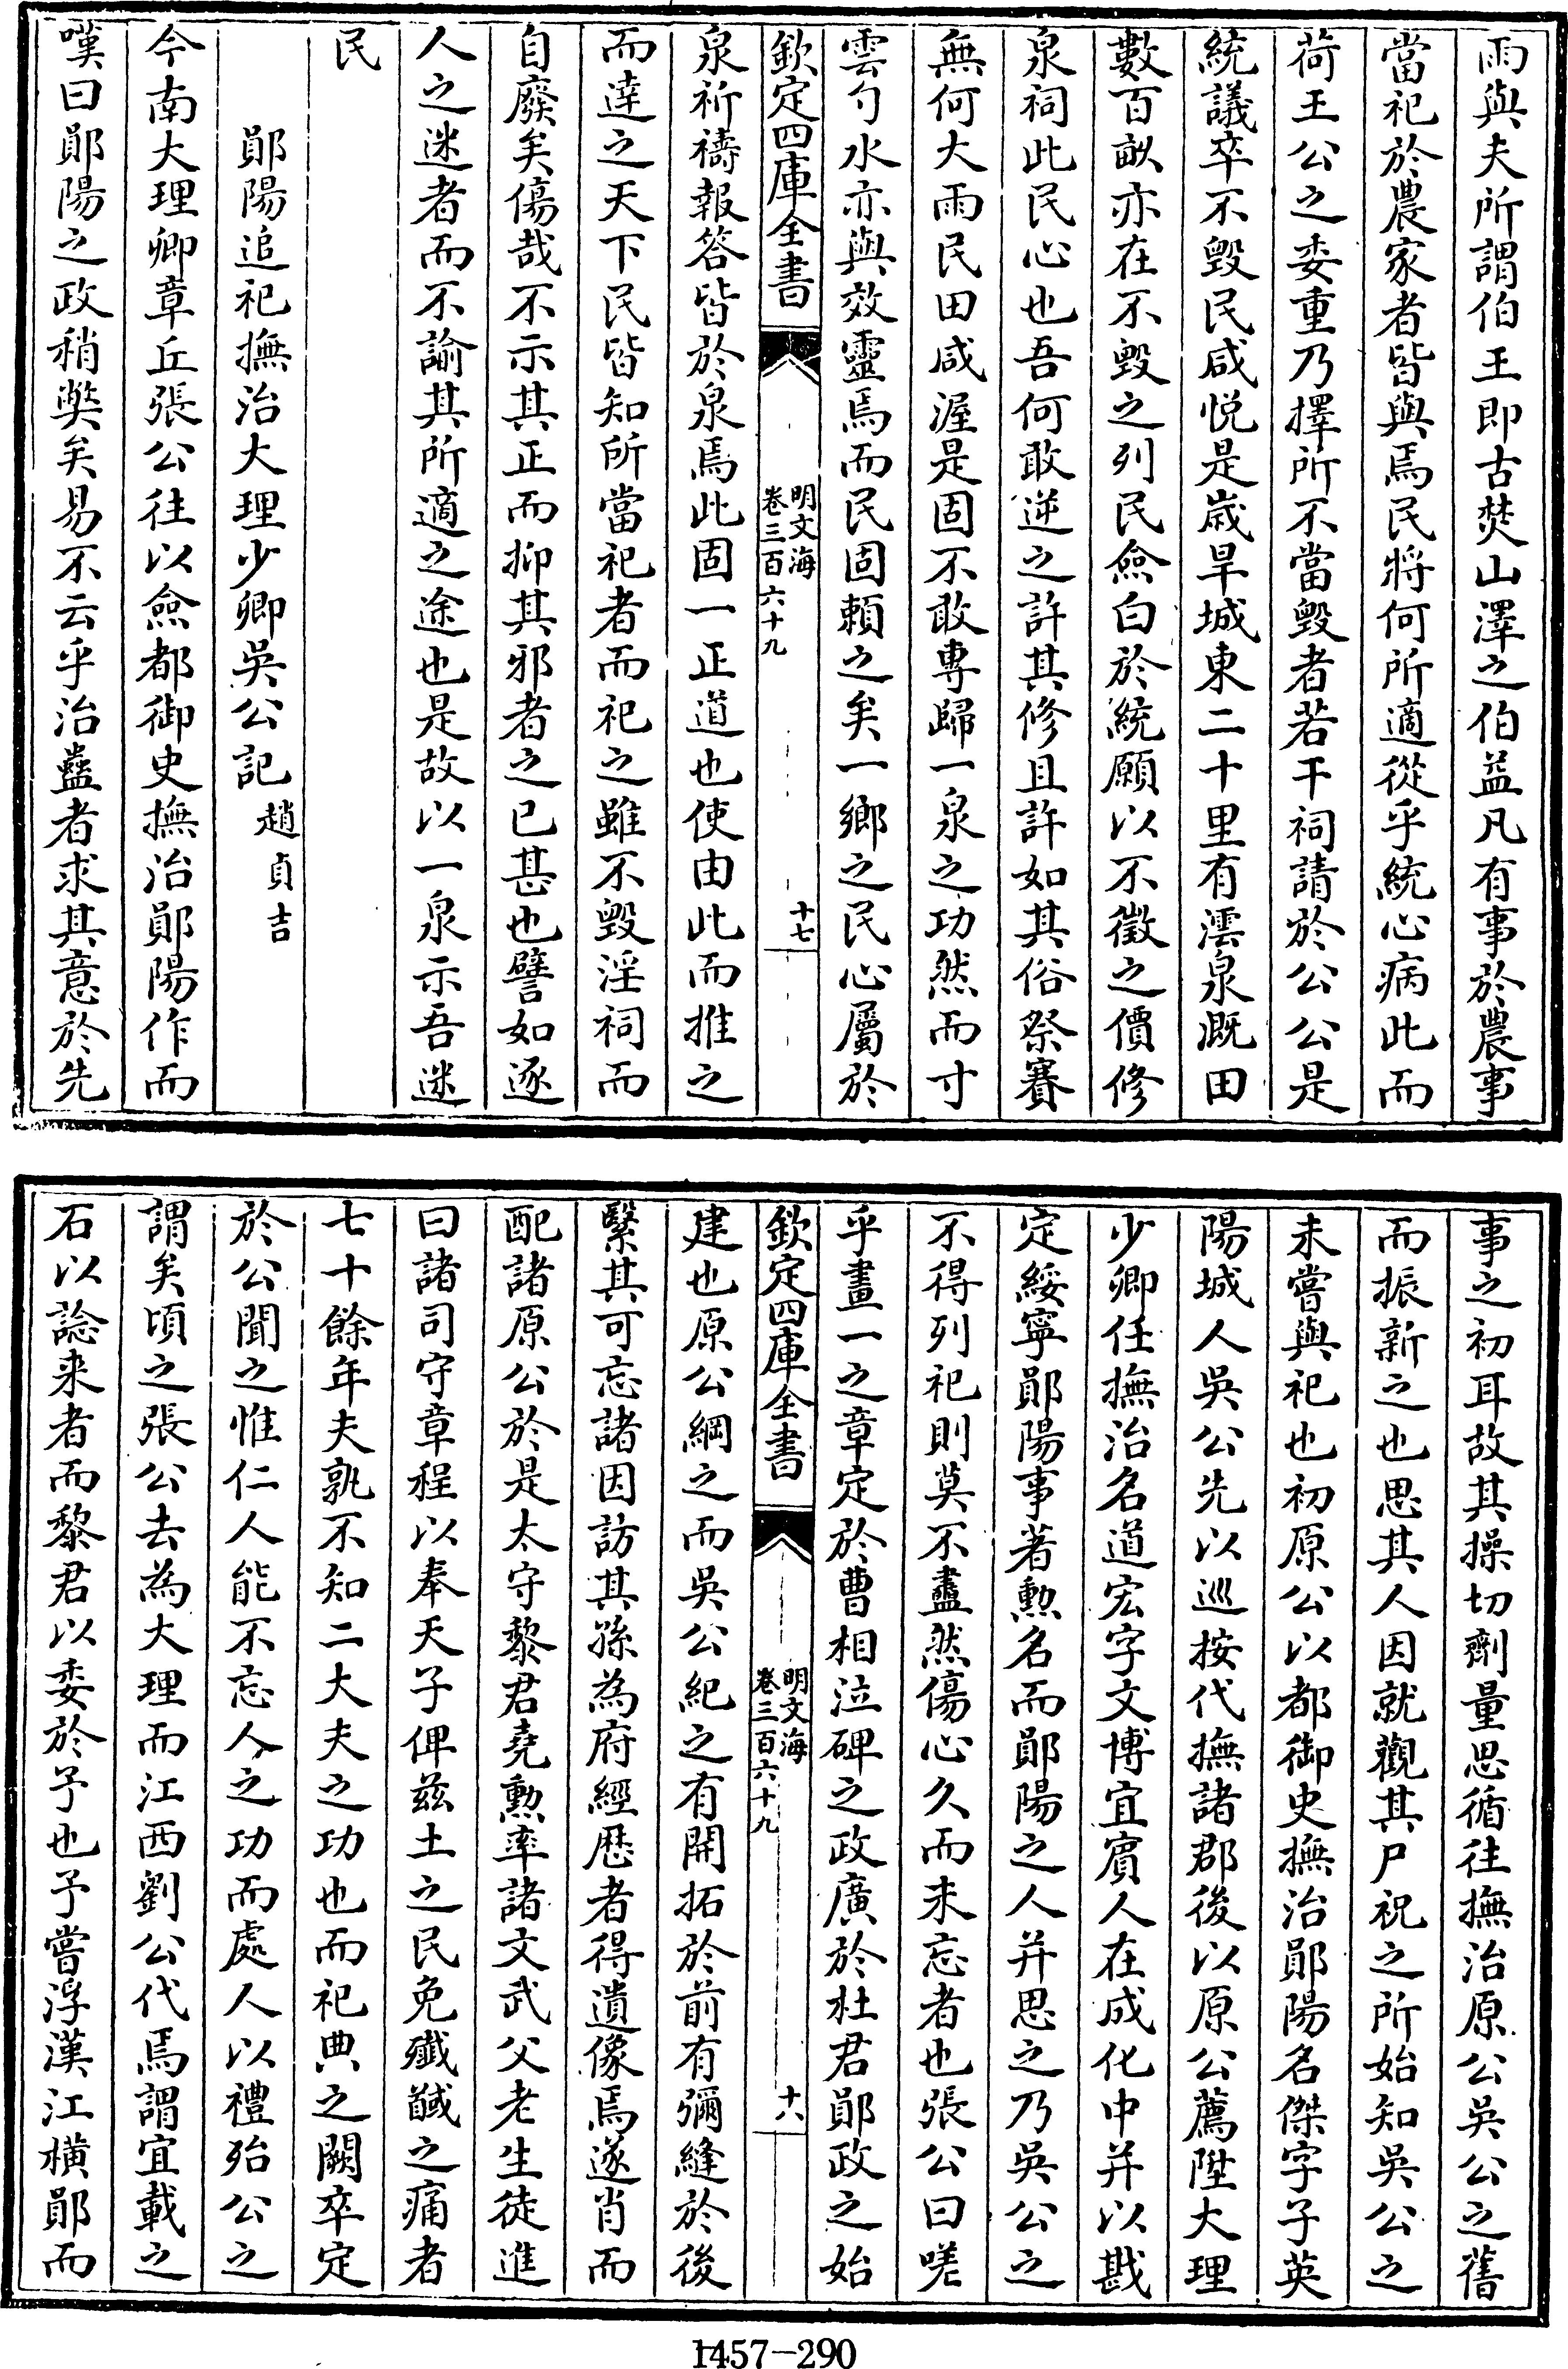 雨與夫所謂伯王即古焚山澤之伯益凡有事於農事
當祀於農家者皆與焉民將何所適從乎統心病此而
荷王公之委重乃擇所不當毀者若干祠請於公公是
統議卒不毀民咸悅是歲旱城東二十里有澐泉溉田
數百畝亦在不毀之列民僉白於統願以不徵之價修
泉祠此民心也吾何敢逆之許其修且許如其俗祭賽
無何大雨民田咸渥是固不敢專歸一泉之功然而寸
雲勺水亦與效靈焉而民固賴之矣一鄉之民心屬於
欽定四庫全書
明文海
卷三百六十九
十七
泉祈禱報答皆於泉焉此固一正道也使由此而推之
而達之天下民皆知所當祀者而祀之雖不毀淫祠而
自廢矣傷哉不示其正而抑其邪者之已甚也譬如逐
人之迷者而不諭其所適之途也是故以一泉示吾迷
民
鄖陽追祀撫治大理少卿吳公記 趙貞吉
今南大理卿章丘張公往以僉都御史撫治鄖陽作而
嘆曰鄖陽之政稍獘矣易不云乎治蠱者求其意於先
事之初耳故其操切劑量思循往撫治原公吳公之舊
而振新之也思其人因就觀其尸祝之所始知吳公之
未嘗與祀也初原公以都御史撫治鄖陽名傑字子英
陽城人吳公先以巡按代撫諸郡後以原公薦陞大理
少卿任撫治名道宏字文博宜賓人在成化中并以戡
定綏寧鄖陽事著勲名而鄖陽之人并思之乃吳公之
不得列祀則莫不衋然傷心久而未忘者也張公曰嗟
乎畫一之章定於曹相泣碑之政廣於杜君鄖政之始
欽定四庫全書
明文海
卷三百六十九
十八
建也原公綱之而吳公紀之有開拓於前有彌縫於後
繄其可忘諸因訪其孫為府經歷者得遺像焉遂肖而
配諸原公於是太守黎君堯勲率諸文武父老生徒進
曰諸司守章程以奉天子俾兹土之民免殲馘之痛者
七十餘年夫孰不知二大夫之功也而祀典之闕卒定
於公聞之惟仁人能不忘人之功而處人以禮殆公之
謂矣頃之張公去為大理而江西劉公代焉謂宜載之
石以諗来者而黎君以委於予也予嘗浮漢江橫鄖而
1457-290